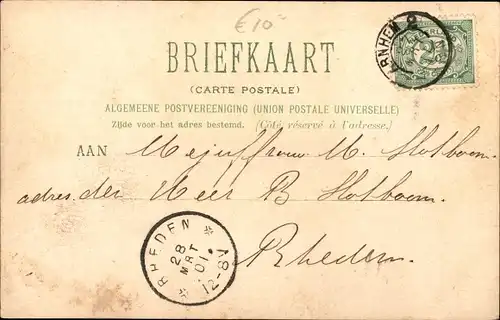 €10
BRIEFKAART
(CARTE POSTALE)
ALGEMEENE POSTVEREENIGING (UNION POSTALE UNIVERSELLE)
Zijde voor het adres bestemd. (Côté réservé à l'adresse.)
AAN Mejuffrouw M. Slotboom
adres. den Heer B Slotboom
Rheden.
ARNHEM 2
RHEDEN
28
MRT
01
12-8V